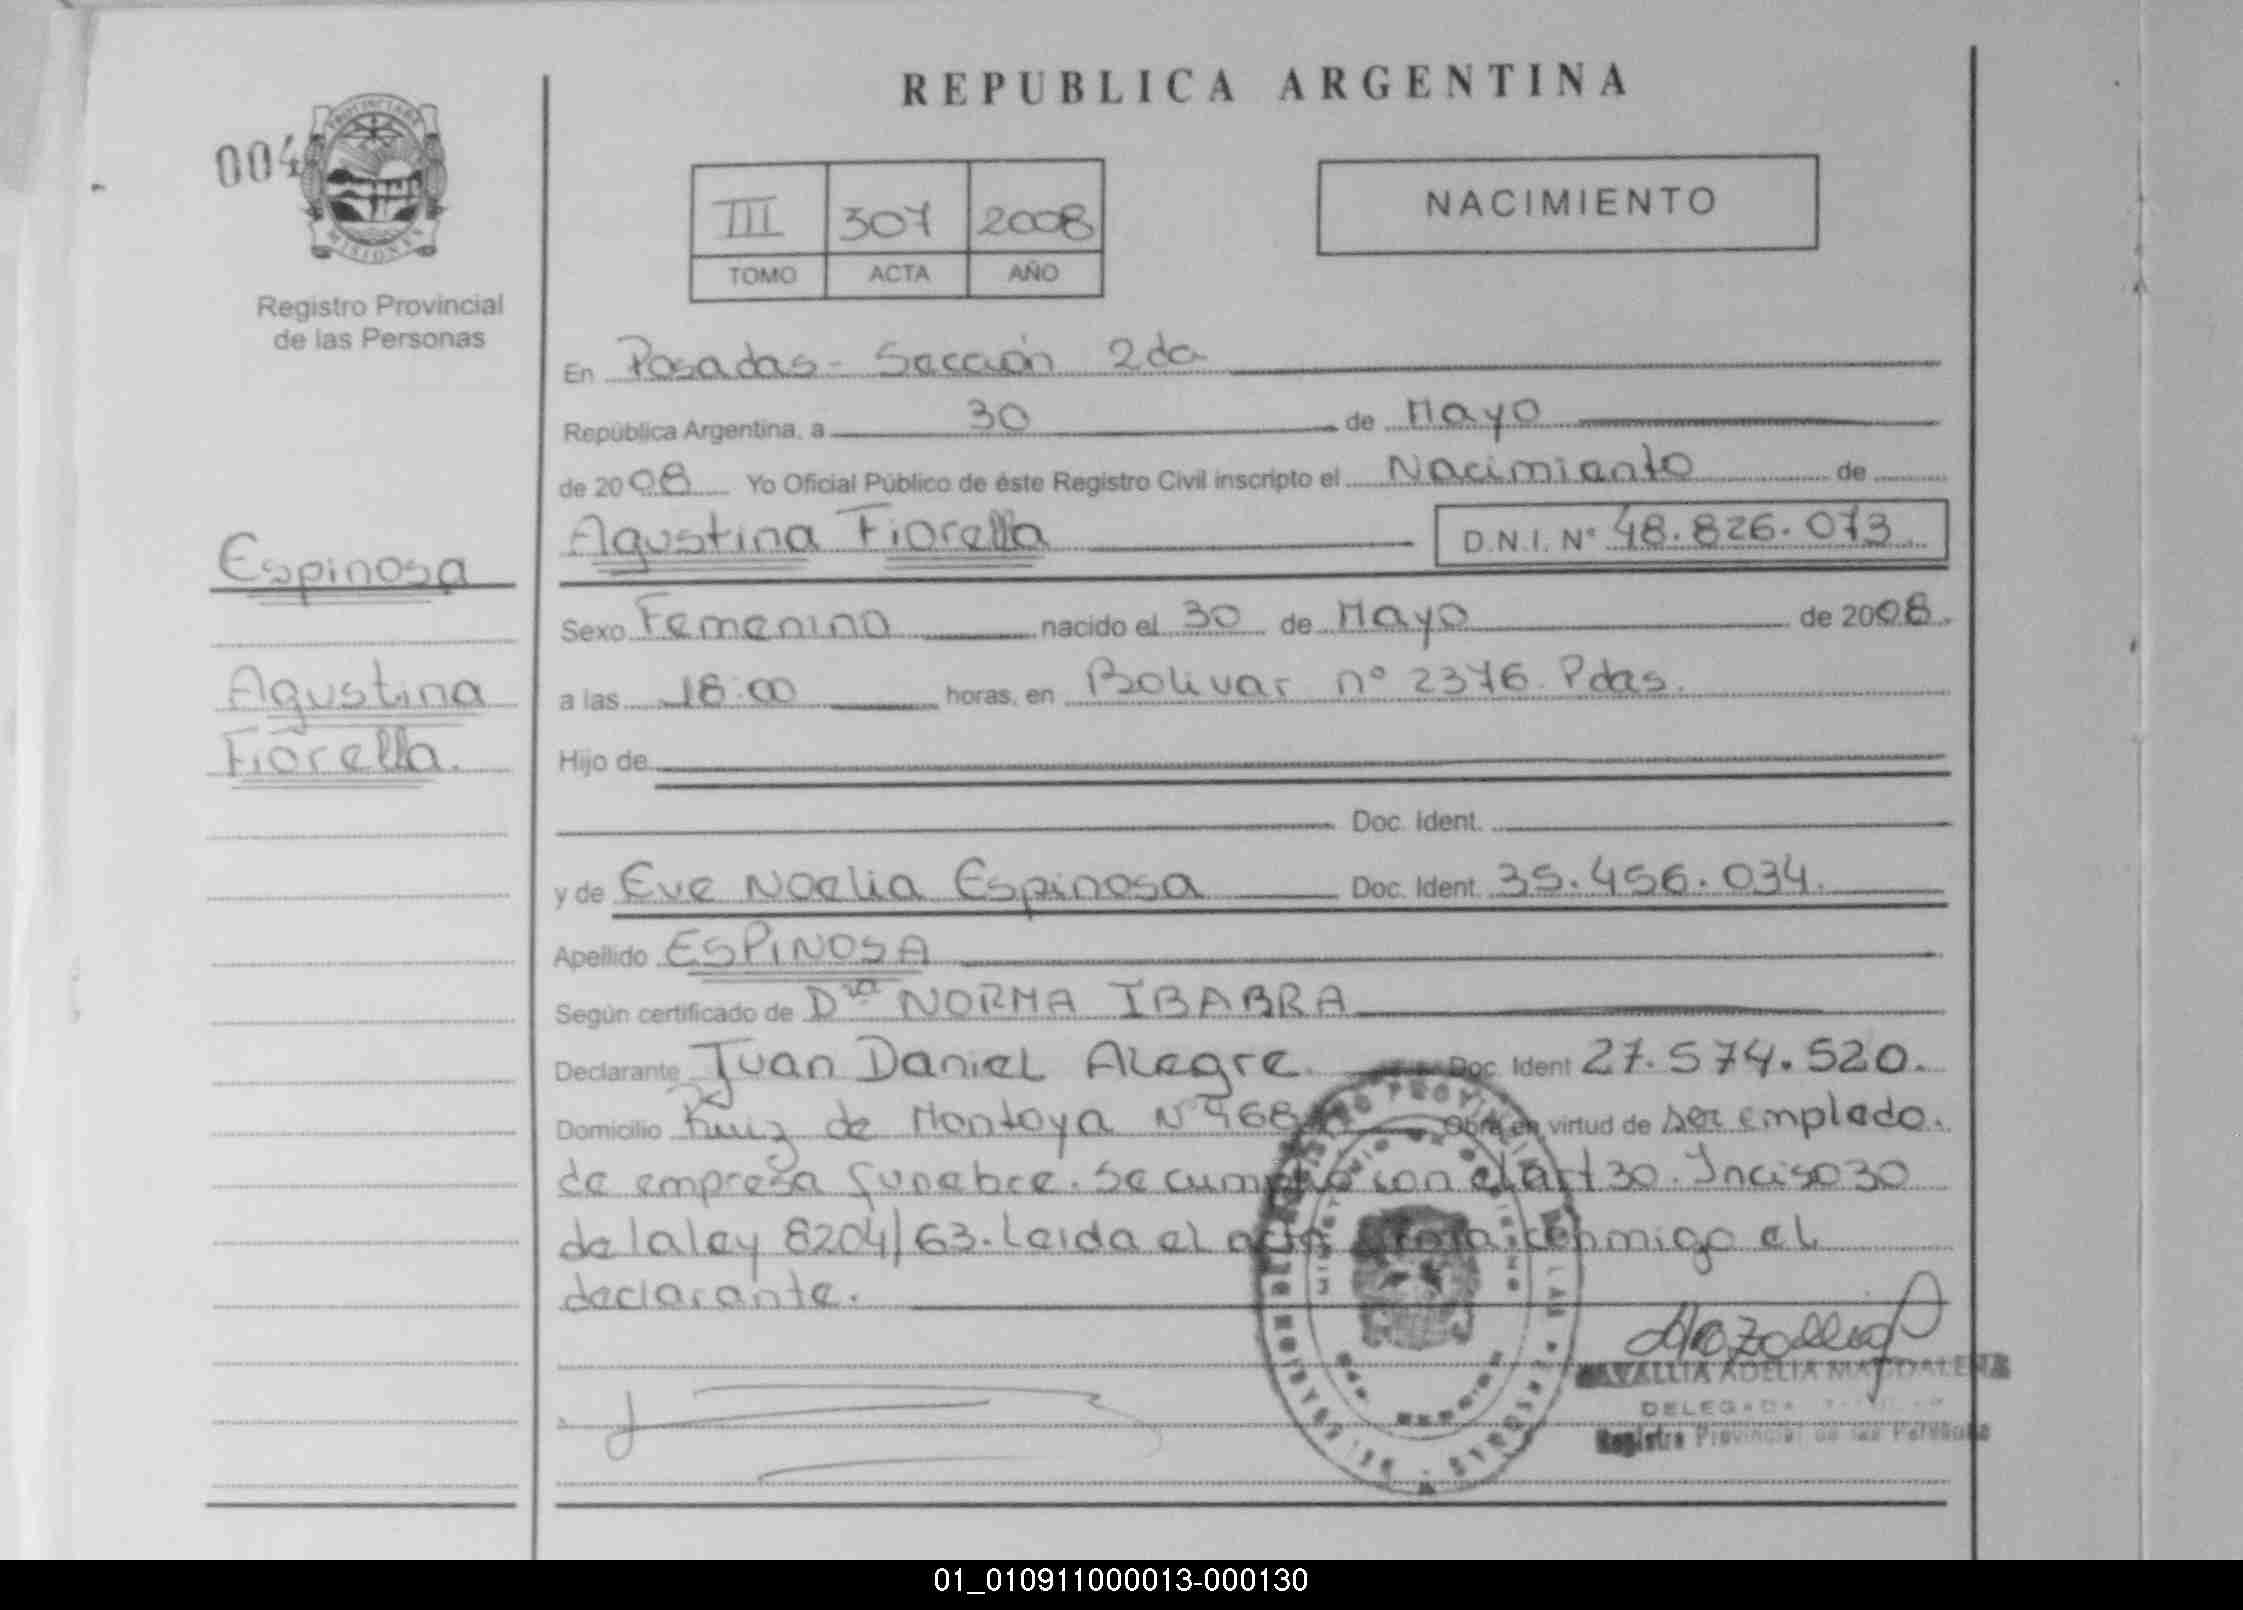 REPUBLICA ARGENTINA
004
PROVINCIA DE
MISIONES
Registro Provincial
de las Personas
III 307 2008
TOMO ACTA AÑO
NACIMIENTO
En Posadas - Sección 2da
República Argentina, a 30 de Mayo
de 2008 Yo Oficial Público de éste Registro Civil inscripto el Nacimiento de
Agustina Fiorella D.N.I. N° 48.826.073
Espinosa
Agustina
Fiorella.
Sexo Femenino nacido el 30 de Mayo de 2008.
a las 18:00 horas, en Bolivar n° 2376. Pdas.
Hijo de
Doc. Ident.
y de Eve Noelia Espinosa Doc. Ident. 35.456.034.
Apellido ESPINOSA
Según certificado de Dra NORMA IBARRA
Declarante Juan Daniel Alegre. Doc. Ident 27.574.520.
Domicilio Ruiz de Montoya N° 468 Obra en virtud de ser empledo.
de empresa funebre. Se cumplió con el art 30. Inciso 30
de la ley 8204/63. Leida el acta firma conmigo el
declarante.
ADELIA MAGDALENA
DELEGADA
Registro Provincial de las Personas
01_010911000013-000130